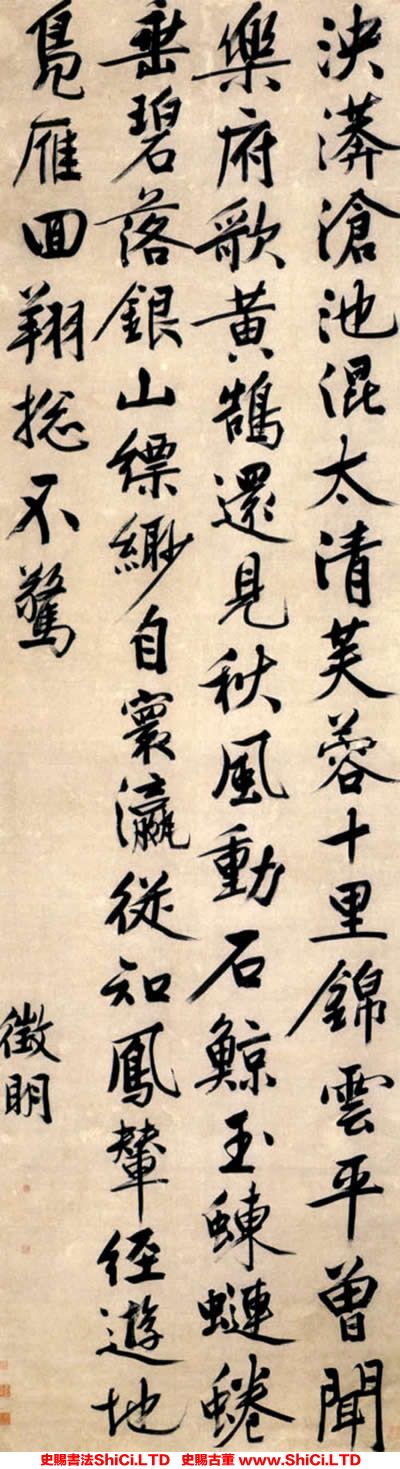 泱漭滄池混太清芙蓉十里錦雲平曾聞
樂府歌黃鵠還見秋風動石鯨玉蝀𧐖蜷
垂碧落銀山縹緲自寰瀛從知鳳輦經遊地
鳧雁囬翔捴不驚
徵明
史賜書法ShiCi.LTD 史賜古董 www.ShiCi.LTD